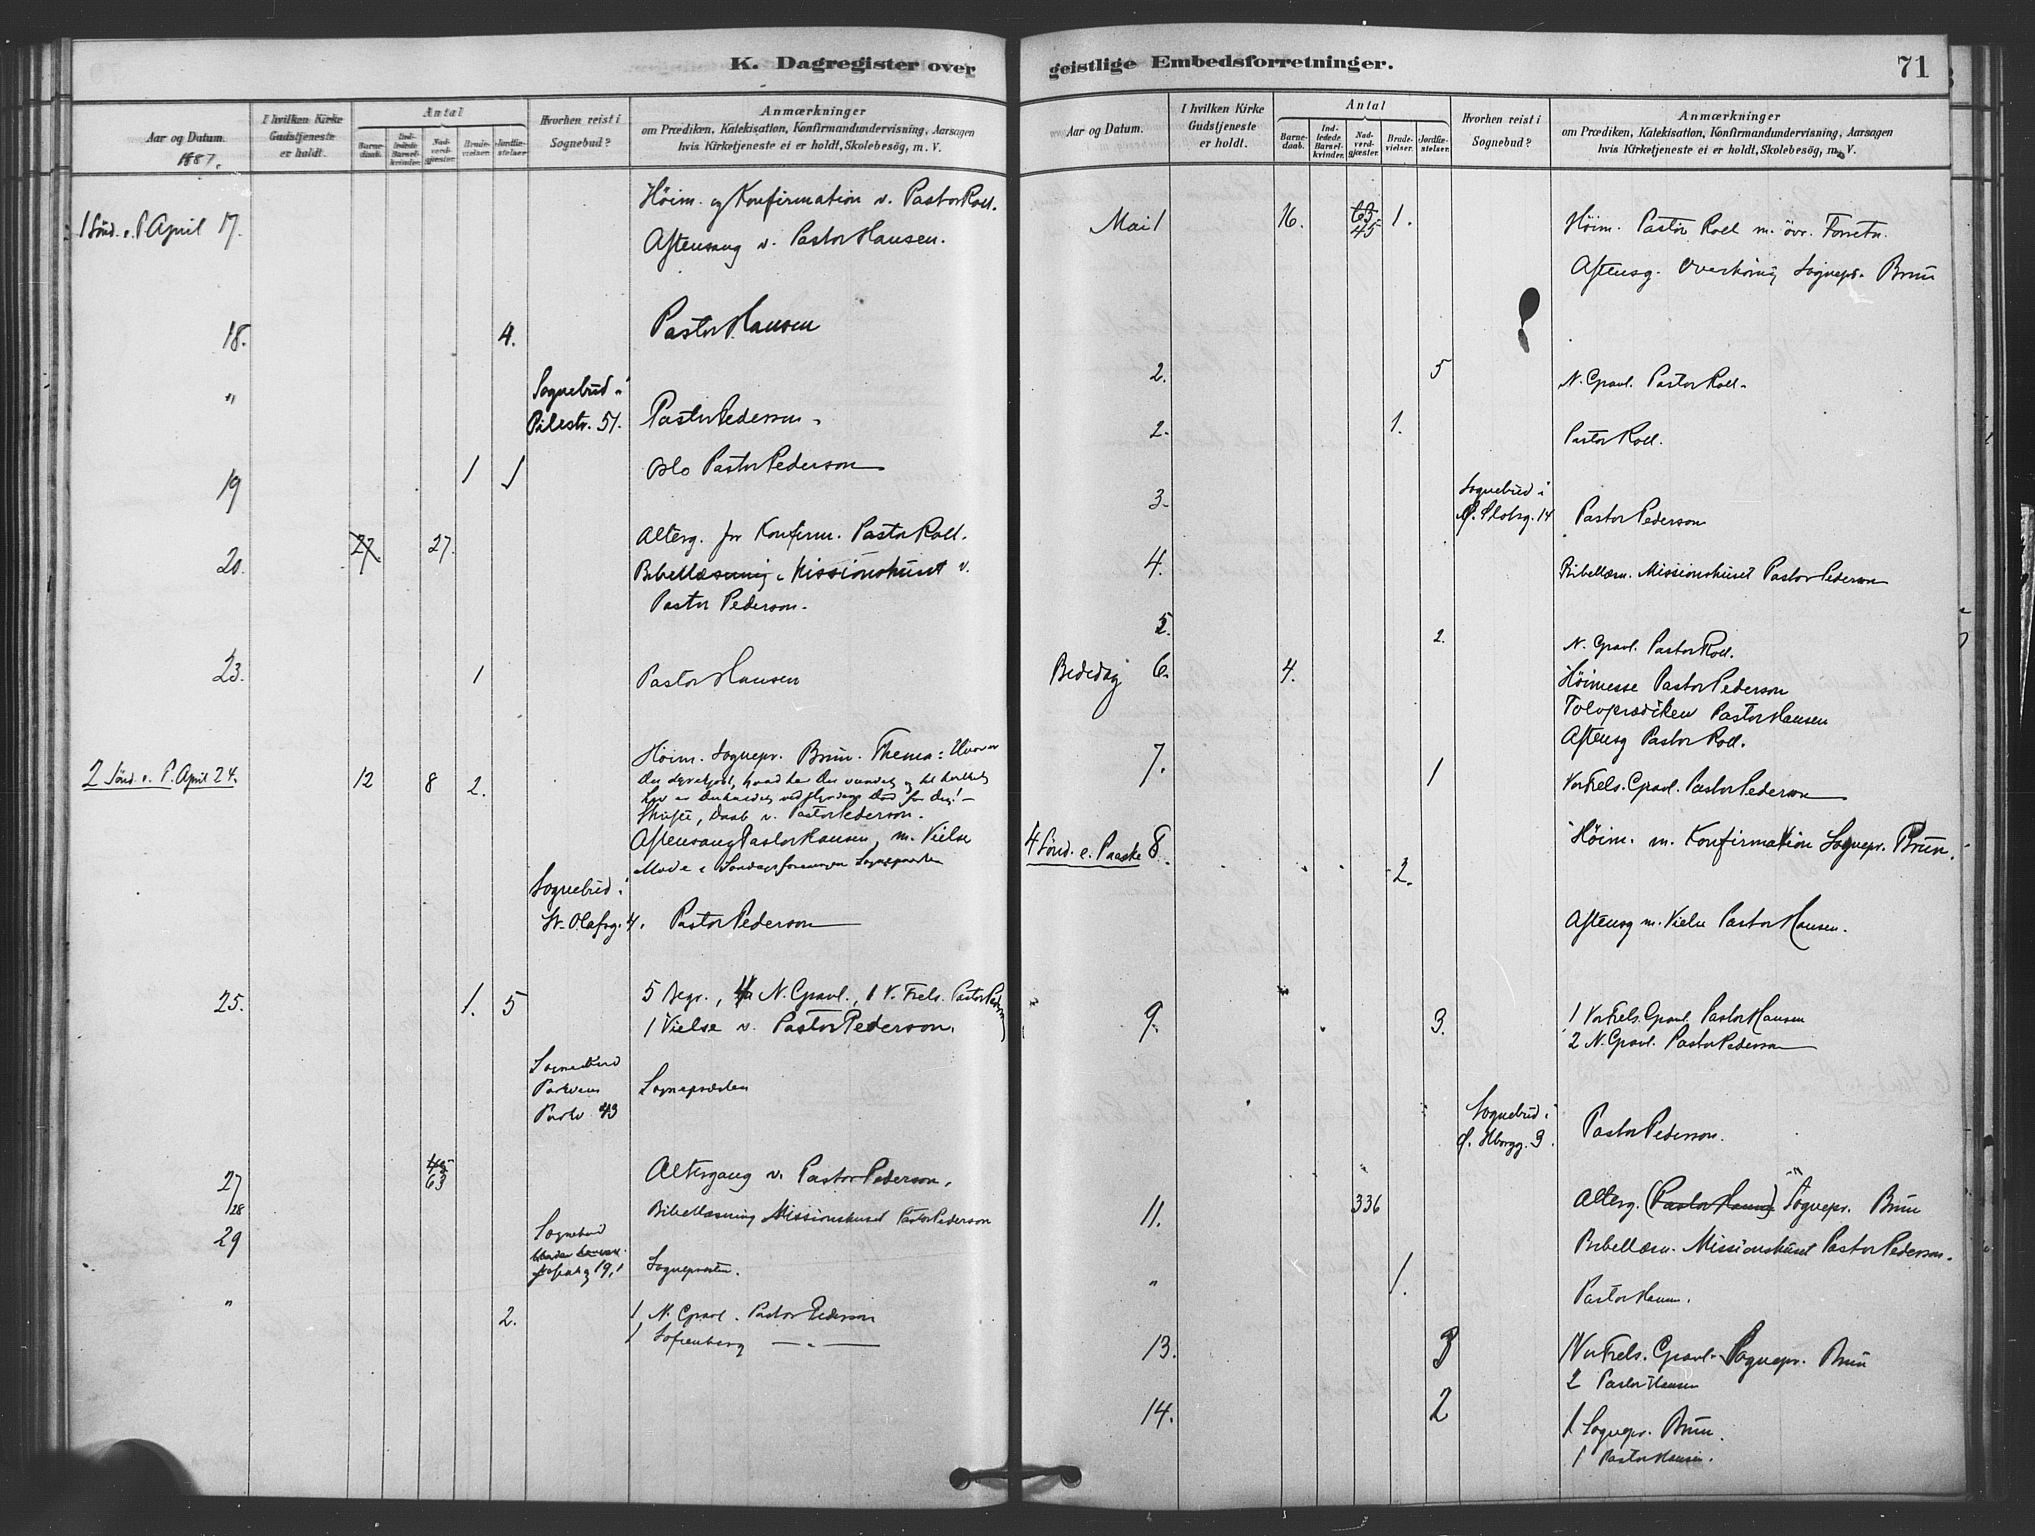 K. Dagregister over
Aar og Datum.
1887.
I hvilken Kirke Gudstjeneste er holdt.
Antal
Barne-daab.
Ind-ledede Barsel-kvinder.
Nad-verd-gjæster.
Brude-vielser.
Jordfæ-stelser.
Hvorhen reist i Sognebud?
Anmærkninger
om Prædiken, Katekisation, Konfirmandundervisning, Aarsagen
hvis Kirketjeneste ei er holdt, Skolebesøg, m. V.
Høim. og Konfirmation v. Pastor Roll.
1 Sønd. e. P. April 17.
Aftensang v. Pastor Hansen.
18. 4. Pastor Hansen
Sognebud i
" Pilestr. 51. Pastor Pederson.
19 1 1 Oslo Pastor Pederson
20. 27. 27. Alterg. for Konfirm. Pastor Roll.
Bibellæsning i Missionshuset v.
Pastor Pederson.
23. 1 Pastor Hansen
Høim. Sognepr. Brun. Thema: Hvor er
2 Sønd. e. P. April 24. 12 8 2.
Skrift, Daab v. Pastor Pederson.
Aftensang Pastor Hansen, m. Vielse
Møde i Søndagsforeningen Sognepræsten
Sognebud i
St. Olafsg. 4. Pastor Pederson
25. 1. 5 5 Begr., 4 N. Gravl., 1 V. Frels. Pastor Pederson
1 Vielse v. Pastor Pederson.
Sognebud
Parkveien
Parkv. 43 Sognepræsten
27/28 45 63 Altergang v. Pastor Pederson.
Bibellæsning Missionshuset Pastor Pederson
29 Sognebud
19, Sognepræsten.
" 2. 1 N. Gravl. Pastor Pederson
1 Sofienberg — " —
geistlige Embedsforretninger.
71
Aar og Datum.
I hvilken Kirke Gudstjeneste er holdt.
Antal
Barne-daab.
Ind-ledede Barsel-kvinder.
Nad-verd-gjæster.
Brude-vielser.
Jordfæ-stelser.
Hvorhen reist i Sognebud?
Anmærkninger
om Prædiken, Katekisation, Konfirmandundervisning, Aarsagen
hvis Kirketjeneste ei er holdt, Skolebesøg, m. V.
Mai 1 16. 63 45 1. Høim. Pastor Roll m. övr. Forretn.
Aftensg. Overhøring Sognepr. Brun
2. 5 N. Gravl. Pastor Roll.
2. 1. Pastor Roll.
Sognebud i
3. Ø. Slotsg. 14 Pastor Pederson
4. Bibellæsn. Missionshuset Pastor Pederson
5. 2. N. Gravl. Pastor Roll.
Bededag 6. 4. Høimesse Pastor Pederson
Tolvprædiken Pastor Hansen
Aftensg Pastor Roll.
7. 1 Vor Frels. Gravl. Pastor Pederson
4 Sønd. e. Paaske 8. 2. Høim. m. Konfirmation Sognepr. Brun.
Aftensg m. Vielse Pastor Hansen.
9. 3. 1 Vor Frels. Gravl. Pastor Hansen
2 N. Gravl. Pastor Pederson
Sognebud i
9. Pastor Pederson.
11. 336 Alterg. (Pastor Hansen) Sognepr. Brun
Bibellæsn. Missionshuset Pastor Pederson.
" 1. Pastor Hansen.
13. 3 1 Vor Frels. Gravl. Sognepr. Brun
2 Pastor Hansen
14. 2 1 Sognepr. Brun.
1 Pastor Hansen.